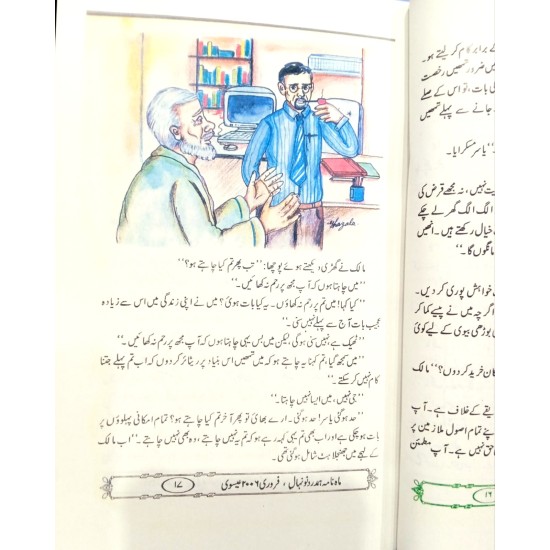 Ghazala
مالک نے گھڑی دیکھتے ہوئے پوچھا: ’’تب پھر تم کیا چاہتے ہو؟‘‘
’’میں چاہتا ہوں کہ آپ مجھ پر رحم نہ کھائیں۔‘‘
’’کیا کہا! میں تم پر رحم نہ کھاؤں۔ یہ کیا بات ہوئی؟ میں نے اپنی زندگی میں اس سے زیادہ
عجیب بات آج سے پہلے نہیں سنی۔‘‘
’’ٹھیک ہے نہیں سنی ہوگی، لیکن میں بس یہی چاہتا ہوں کہ آپ مجھ پر رحم نہ کھائیں۔‘‘
’’میں سمجھ گیا، تم کہنا یہ چاہتے ہو کہ میں تمھیں اس بنیاد پر ریٹائر کر دوں کہ اب تم پہلے جتنا
کام نہیں کر سکتے۔‘‘
’’جی نہیں، میں ایسا نہیں چاہتا۔‘‘
’’حد ہوگئی یاسر! حد ہوگئی۔ ارے بھائی تو پھر آخر تم کیا چاہتے ہو؟ تمام امکانی پہلوؤں پر
بات ہو چکی ہے اور اب بھی تم یہی کہہ رہے ہو کہ تم یہ نہیں چاہتے، وہ بھی نہیں چاہتے۔‘‘ اب مالک
کے لہجے میں جھنجلاہٹ شامل ہوگئی تھی۔
ماہ نامہ ہمدرد نونہال، فروری ۲۰۰۶ عیسوی
۱۷
ے برابر کام کر لیتے ہو۔
میں ضرور تمھیں رخصت
کی بات، تو اس کے صلے
جانے سے پہلے تمھیں
‘‘ یاسر مسکرایا۔
یت نہیں، نہ مجھے قرض کی
الگ الگ گھر لے چکے
خیال رکھتے ہیں۔ انھیں
مانگوں گا۔‘‘
خواہش پوری کر دیں۔
اگرچہ میں نے پیسے کما کر
بوڑھی بیوی کے لیے کوئی
کان خرید کر دوں؟‘‘ مالک
یقے کے خلاف ہے۔ آپ
پنے تمام اصول ملازمین پر
حق نہیں ہے۔ آپ مطمئن
۱۶